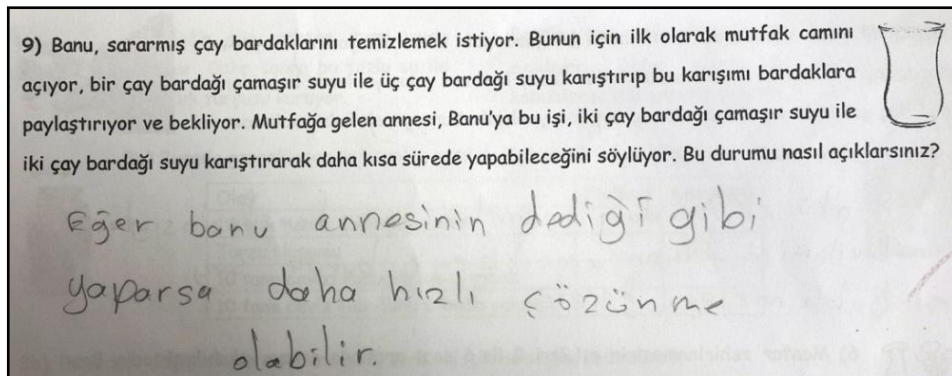 9) Banu, sararmış çay bardaklarını temizlemek istiyor. Bunun için ilk olarak mutfak camını
açıyor, bir çay bardağı çamaşır suyu ile üç çay bardağı suyu karıştırıp bu karışımı bardaklara
paylaştırıyor ve bekliyor. Mutfağa gelen annesi, Banu'ya bu işi, iki çay bardağı çamaşır suyu ile
iki çay bardağı suyu karıştırarak daha kısa sürede yapabileceğini söylüyor. Bu durumu nasıl açıklarsınız?
Eğer banu annesinin dediği gibi
yaparsa daha hızlı çözünme
olabilir.